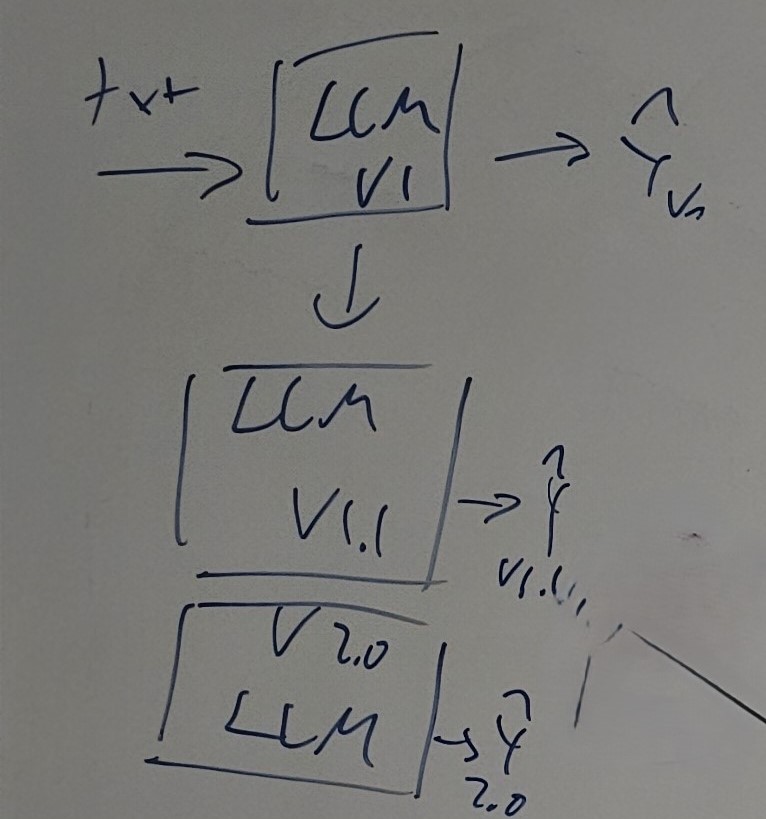 txt
LLM
V1
Ŷ
V1
LLM
V1.1
Ŷ
V1.1
V 2.0
LLM
Ŷ
2.0